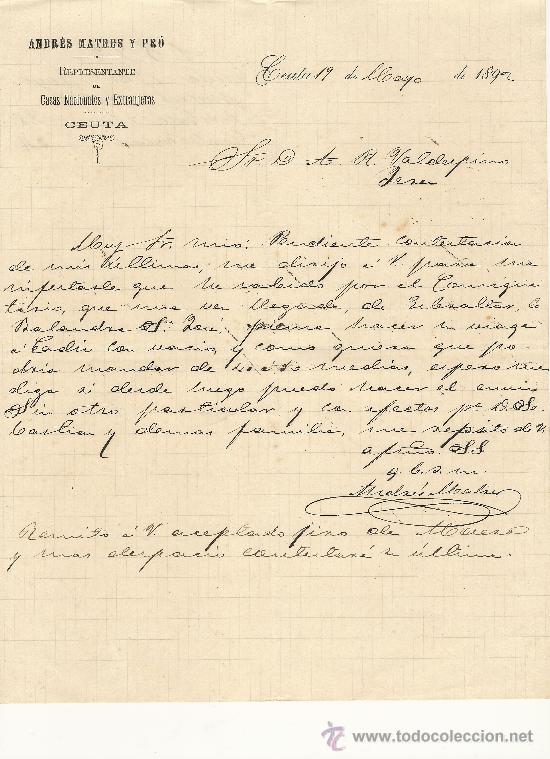 ANDRÉS MATEUS Y PRÓ
REPRESENTANTE
DE
Casas Nacionales y Extranjeras
CEUTA
Ceuta 19 de Mayo de 1892
Sr. D. A. R. Valdespino
Jerez
Muy Sr. mio: Pendiente contestacion
de mi última, me dirijo á V. para ma
nifestarle que he sabido por el Consigna
tario, que una vez llegada, de Gibraltar, la
Balandra Sn. José, piensa hacer un viage
á Cadiz con vacio, y como quiera que po
dria mandar de medias, espero me
diga si desde luego puedo hacer el envio
Sin otro particular y con afectos pa. D.
y demas familia, me repito de V.
afmo. S.S.
q.b.s.m.
Andrés Mateus
Remito á V. aceptado giro de
y mas despacio contestaré su última.
www.todocoleccion.net